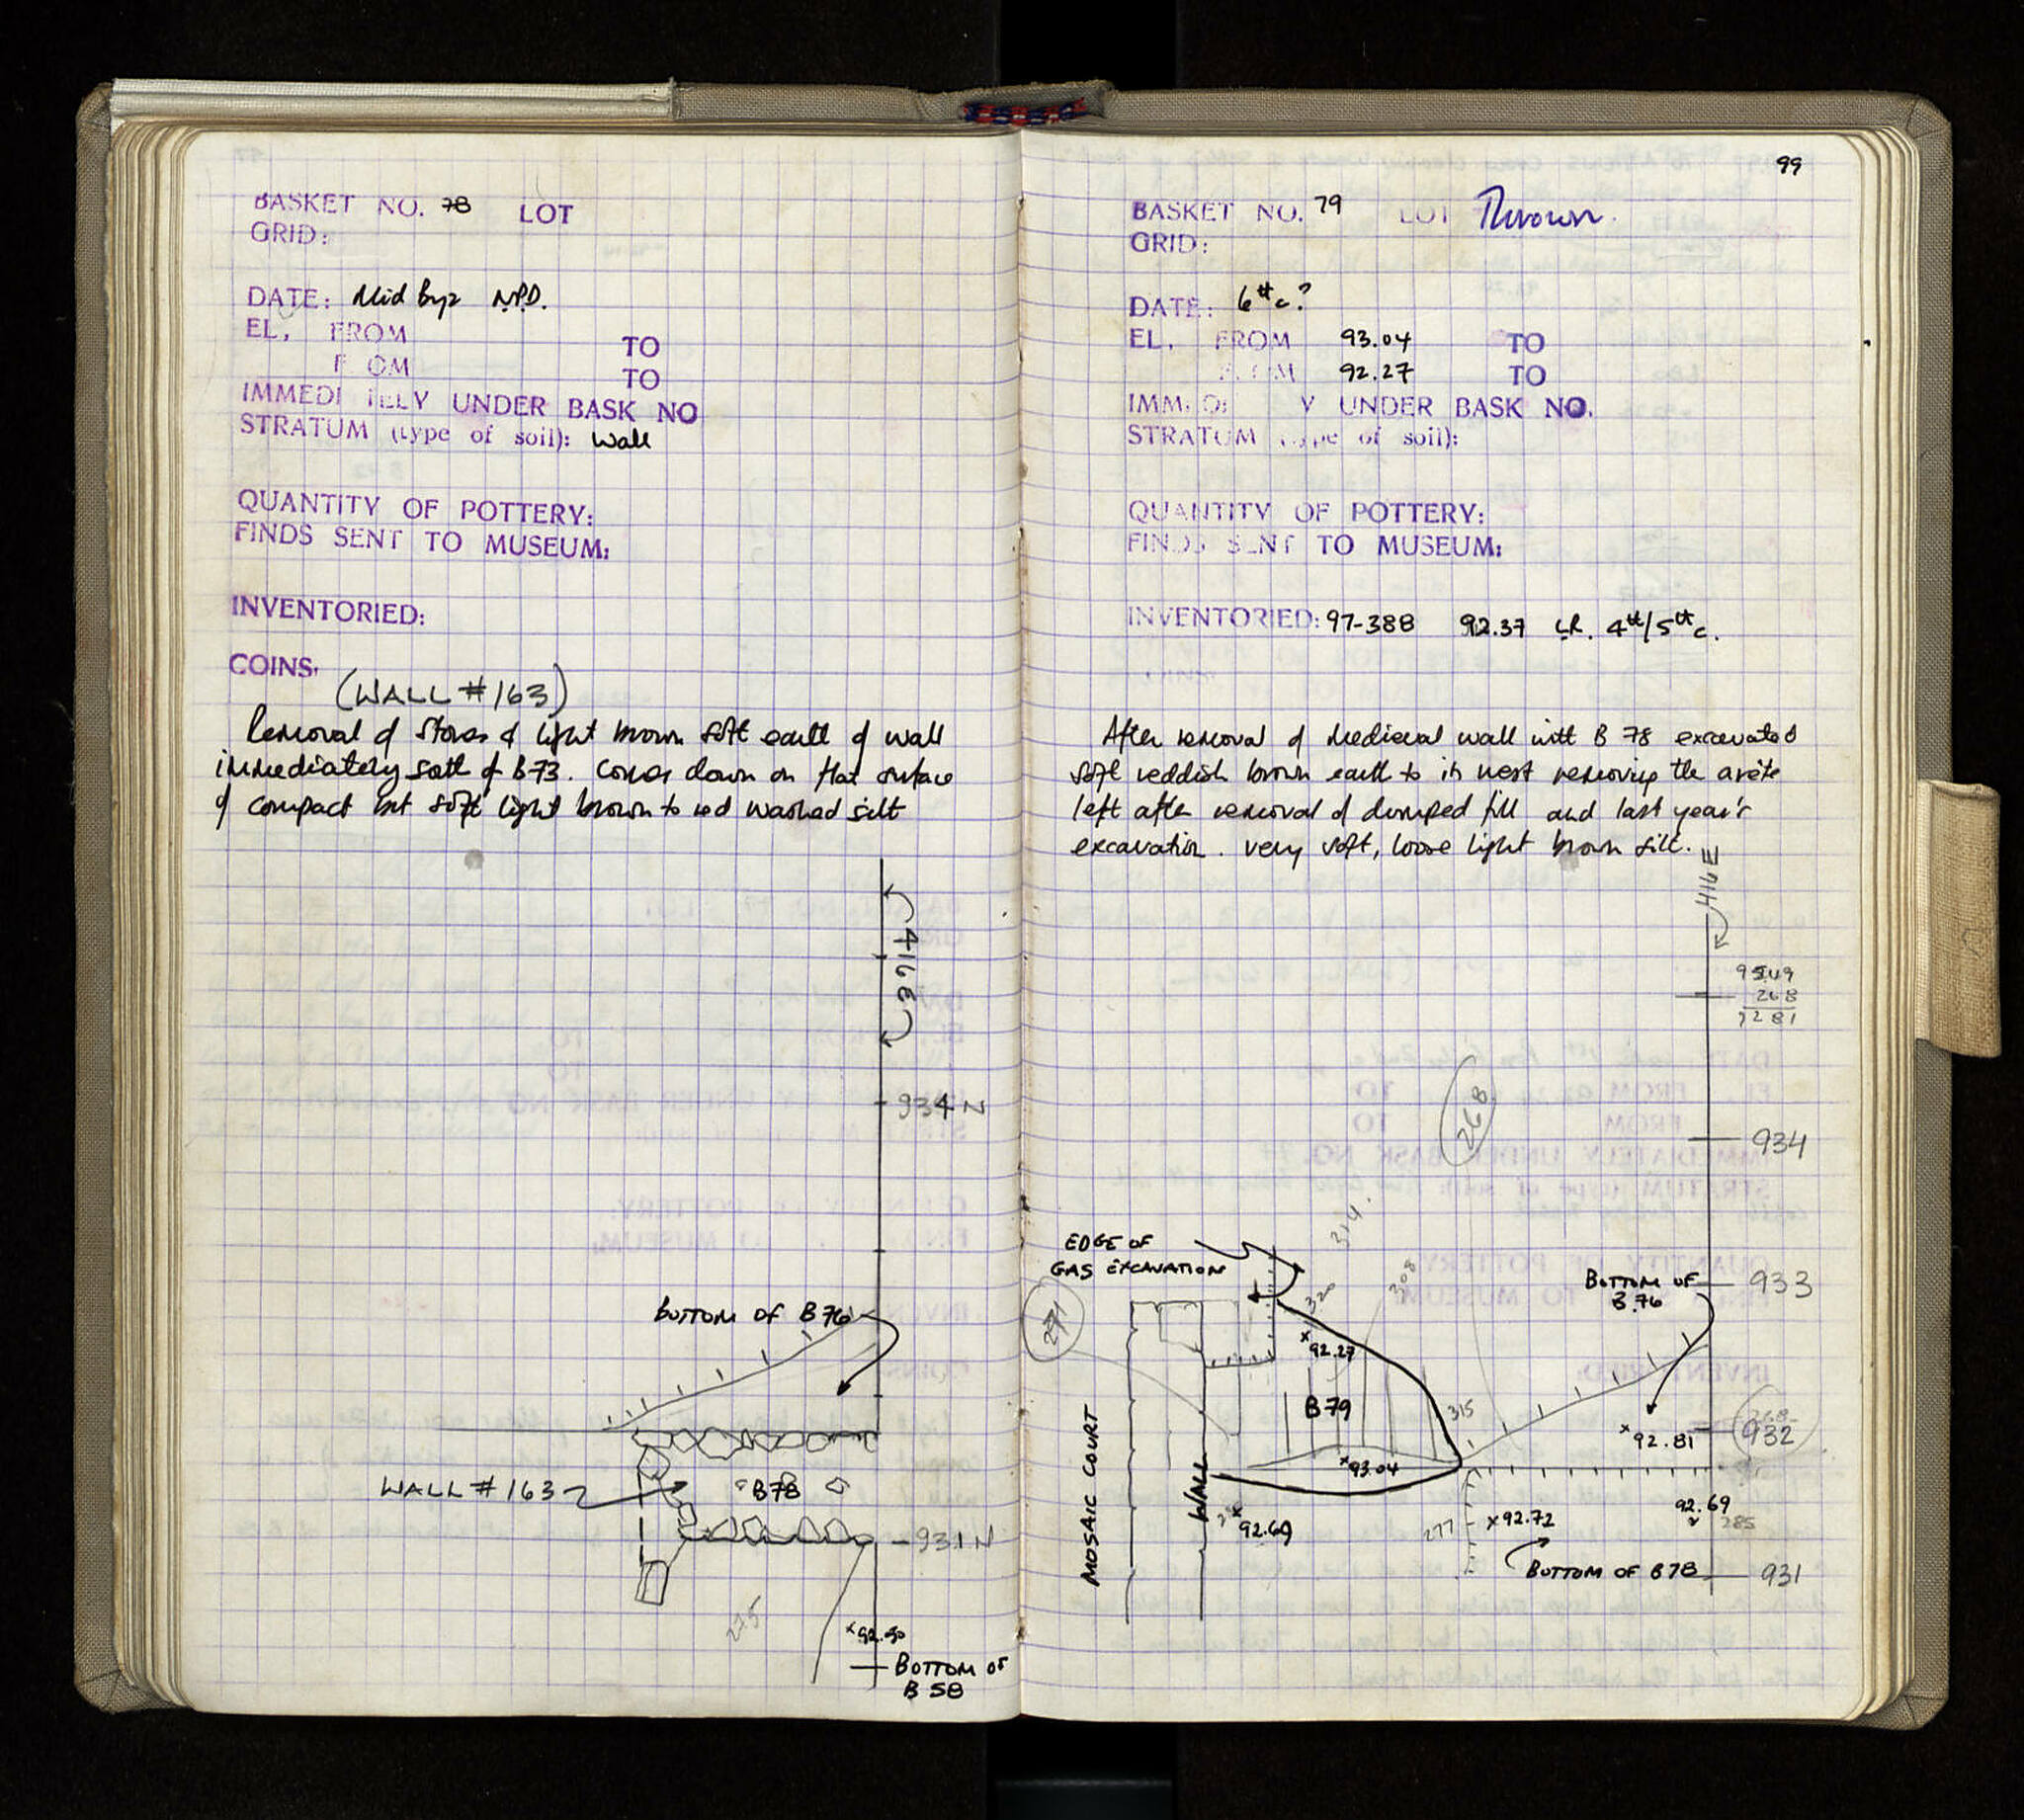 BASKET NO. 78 LOT
GRID:
DATE: Mid Byz N.P.D.
EL. FROM TO
F OM TO
IMMEDI TELY UNDER BASK NO
STRATUM (type of soil): wall
QUANTITY OF POTTERY:
FINDS SENT TO MUSEUM:
INVENTORIED:
COINS.
(WALL #163)
Removal of stones & light brown soft earth of wall
immediately south of B73. Comes down on flat surface
of compact but soft light brown to red washed silt
416E
934 N
BOTTOM OF B76
WALL #163
B78
931 N
275
x 92.50
BOTTOM OF
B 58
99
BASKET NO. 79 LOT Thrown.
GRID:
DATE: 6th c?
EL. FROM 93.04 TO
OM 92.27 TO
IMM Y UNDER BASK NO.
STRATUM (type of soil):
QUANTITY OF POTTERY:
FINDS SENT TO MUSEUM:
INVENTORIED: 97-388 92.37 LR. 4th/5th c.
COINS
After removal of medieval wall with B 78 excavated
soft reddish brown earth to its west removing the arête
left after removal of dumped fill and last year's
excavation. Very soft, loose light brown silt.
416 E
9549
268
9281
268
934
314
EDGE OF
GAS EXCAVATION
320
308
BOTTOM OF
B.76
933
271
x 92.27
B79
315
x 92.81
268
932
x 93.04
MOSAIC COURT
WALL
x 92.69
277
x 92.72
92.69
285
BOTTOM OF B78
931